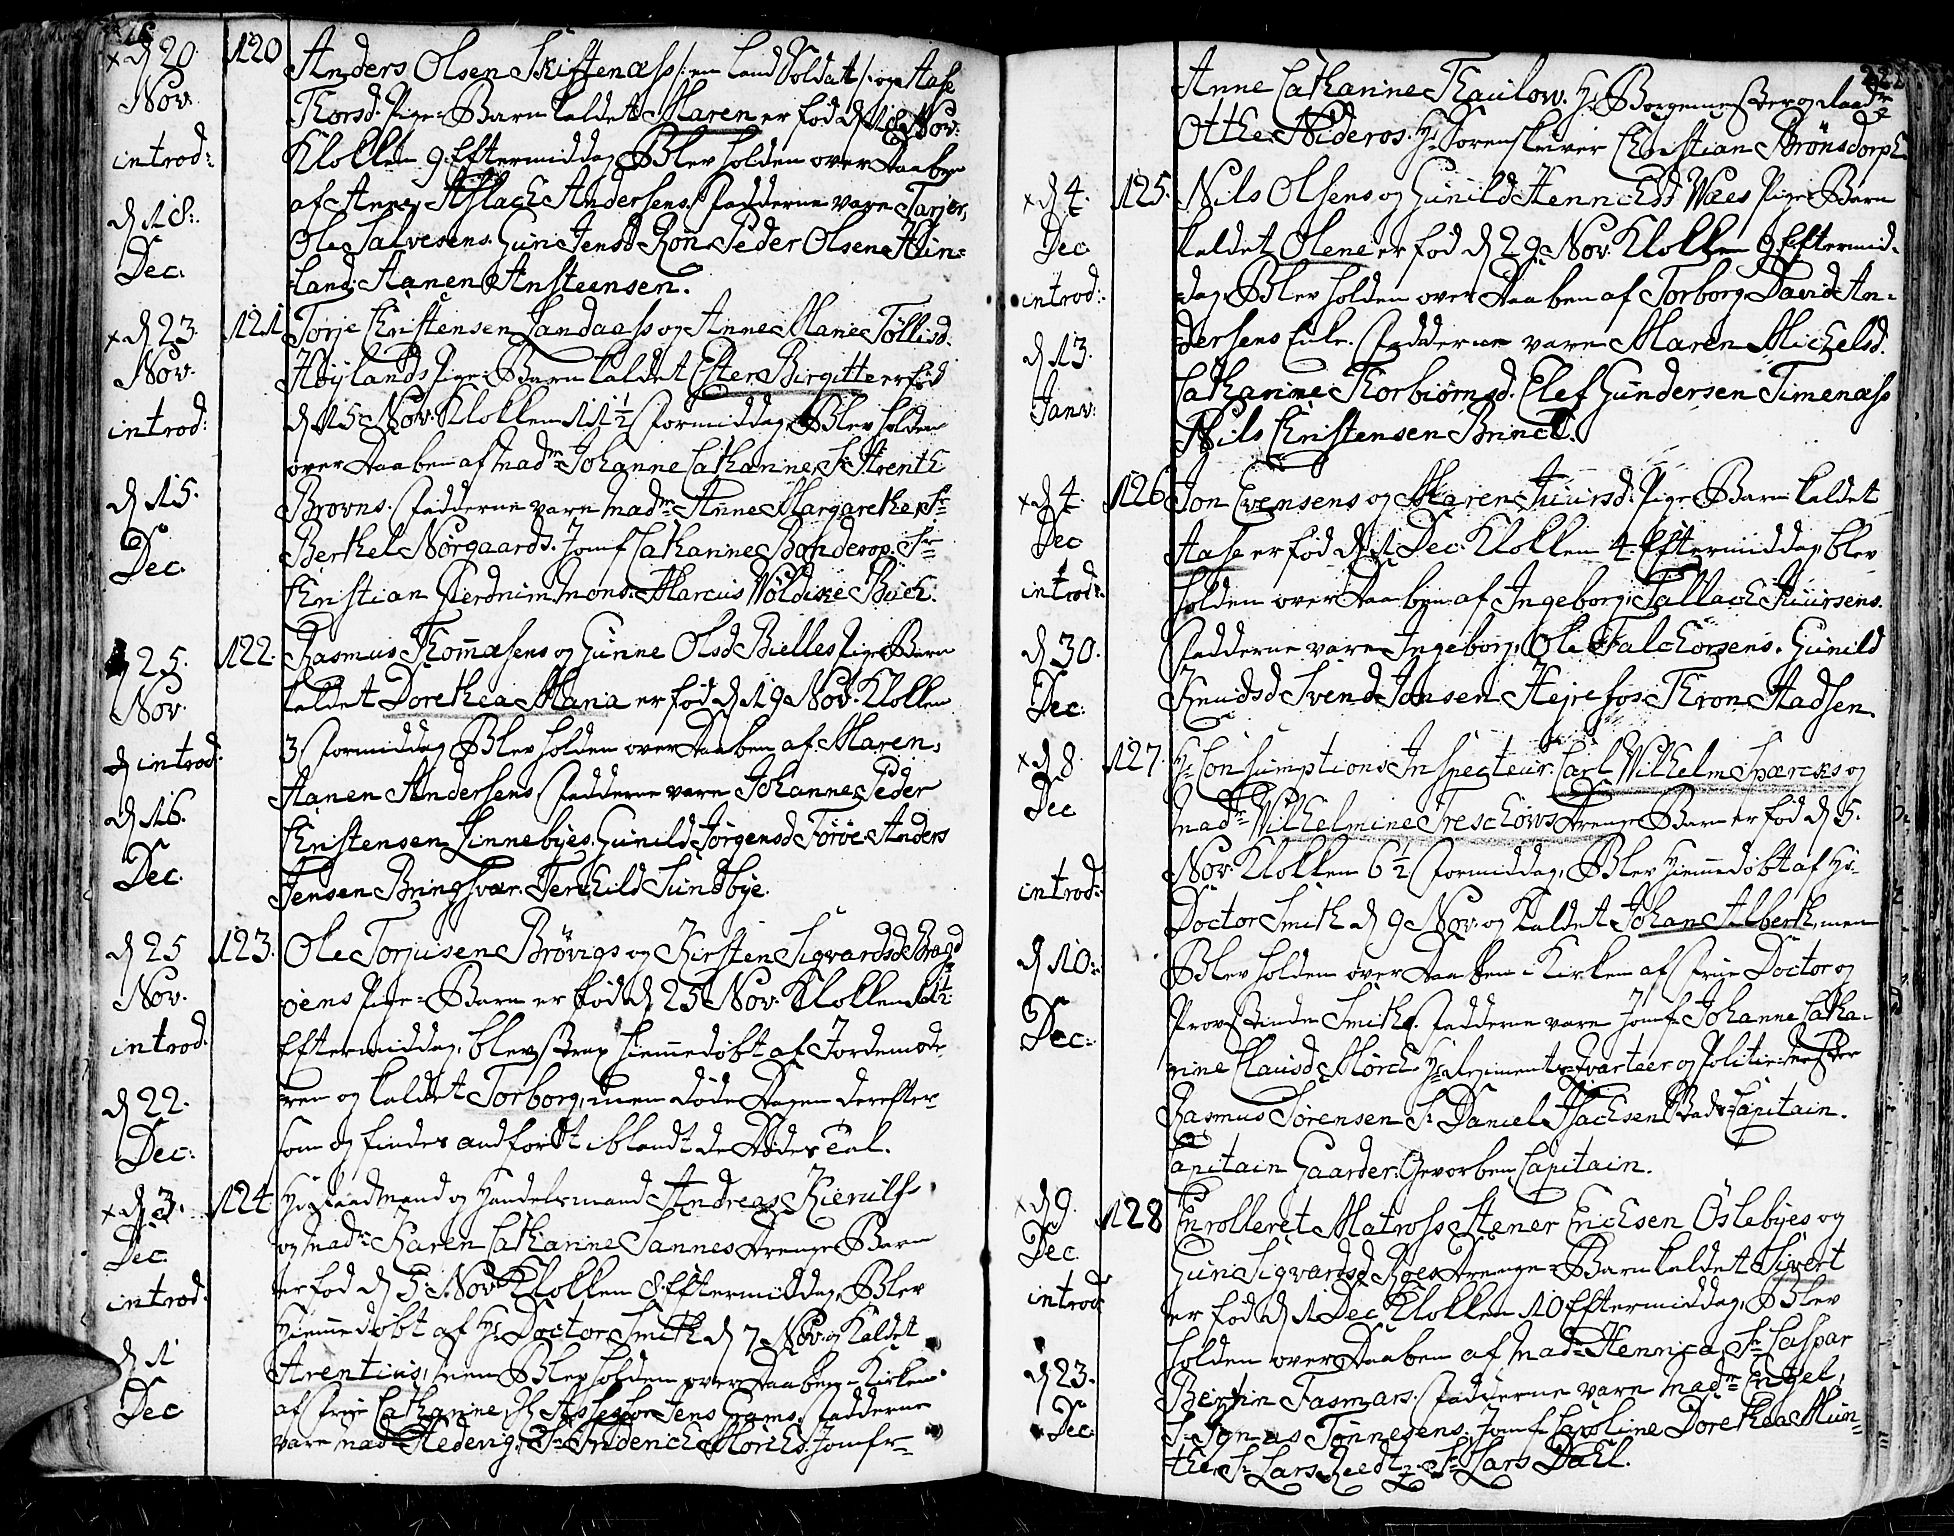 x d 20 Nov. introd: d 18. Dec.
120 Anders Olsen Skiftenæss /: en Land Soldat /: og Aase
Thorsd. Pige-Barn kaldet Maren er fød d 18 Nov:
Klokken 9 Eftermiddag, Blev holden over Daaben
af Anne, Aslach Andersens. Fadderne vare Tarjer,
Ole Salvesens. Guri Jensd Røn. Peder Olsen Hün=
land. Aanen Ansteensen.
x d 23. Nov. introd: d 15. Dec.
121 Torje Christensen Sandaass og Anne Marie Tøllisd.
Høylands Pige-Barn kaldet Ester Birgitte er fød
d 15 Nov. Klokken 11½ Formiddag, Blev holden
over Daaben af Madme Johanne Cathanine, Sr Arenth
Brovns. Fadderne vare Madme Anne Margarethe, Sr
Berthel Nørgaards. Jomf Cathanine Bohderop. Sr
Christian Mons. Marcus Wöldike Büch.
d 25. Nov. d introd: d 16. Dec.
122. Rasmus Thomæsens og Gunne Olsd Bielles Pige Barn
kaldet Dorethea Maria er fød d 19 Nov. Klokken
3 Formiddag, Blev holden over Daaben af Maren,
Aanen Andersens. Fadderne vare Johanne, Peder
Christensen Linnebyes. Gunild Jørgensd Torøe. Anders
Jensen Bringsvær. Terchild Sundbye.
d 25 Nov. introd. d 22. Dec:
123. Ole Torjusen Brøvigs og Kirsten Sigvardsd Bragd
øens Pige-Barn er fød d 25 Nov. Klokken 1½
Eftermiddag, blev strax hiemmedøbt af Jordemode-
ren og kaldet Torborg, men døde Dagen derefter
som og findes andført iblandt de Dødes Tal.
x d 3. Dec. introd. d 11 Dec
124. Hr og Handelsmand Andreas Kierulfs
og Madme Karen Cathanine Sannes Drenge-Barn
er fød d 5. Nov Klokken 8 Eftermiddag, Blev
hiemmedøbt af Hr Doctor Smith d 7 Nov. og kaldet
Arentius, men Blev holden over Daaben i Kirken
af Frue Cathanine, Hr Assessor Jens Grams. Fadderne
vare Madme Hedevig, Sr Friderich Mørchs. Jomfr
222
Anne Cathanine Thaulow. Hr Borgemester og Raadm
Otthe Nideros. Hr Sorenskriver Christian Brönsdorph.
x d 4. Dec. introd: d 13. Janv:
125. Nils Olsens og Gunild Hennichsd Wæs Pige Barn
kaldet Olene er fød d 29 Nov. Klokken 9 Eftermid-
dag, Blev holden over Daaben af Torborg, David An-
dersens Enke. Fadderne vare Maren Michelsd.
Catharine Thorbiørnsd. Elef Gundersen Timenæss
Nils Christensen Brinch.
x d 4. Dec introd: d 30. Dec.
126 Jon Evensens og Maren Juursd. Pige-Barn kaldet
Aase er fød d 1 Dec. Klokken 4 Eftermiddag, blev
holden over Daaben af Ingeborg, Tallach Juursens.
Fadderne vare Ingeborg, Ole Falchorsens. Gunild
Knudsd. Svend Jonsen Hejrefos. Thron Madsen.
x d 8. Dec introd: d 10. Dec:
127. Hr Consumptions Inspecteur Carl Wilhelm Spærcks og
Madme Wilhelmine Treschows Drenge Barn er fød d 5.
Nov. Klokken 6½ Formiddag, Blev hiemmedøbt af Hr
Doctor Smith d 9 Nov. og kaldet Johan Alberth, men
Blev holden over Daaben i Kirken af Frue Doctor og
Provstinde Smith. Fadderne vare Jomf: Johanne Catha-
rine Clausd Mørch. Hr Regiments Qvarteer og Politie-Mester
Rasmus Sørensen. Sr Daniel Isachsen Stads-Capitain.
Capitain Gaarder. Gevorben Capitain.
x d 9. Dec. introd: d 23. Dec:
128 Enrolleret Matross Stener Erichsen Östebyes og
Guri Sigvardsd Roes Drenge-Barn kaldet Sivert
er fød d 1 Dec. Klokken 10 Eftermiddag, Blev
holden over Daaben af Madme Henrica, Sr Caspar
Bertin Fasmars. Fadderne vare Madme Engel,
Sr Ignas Tønnesens. Jomf Caroline Dorethea Mün-
ther. Sr Lars Reedtz. Sr Lars Dahl.